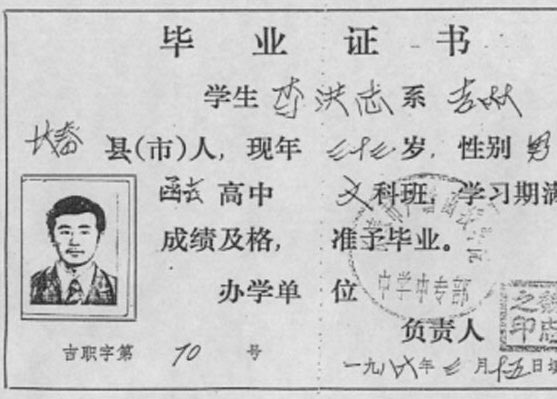 毕业证书
学生 李洪志 系 吉林
长春 县(市)人, 现年 三十三 岁, 性别 男
函授 高中 文 科班, 学习期满
成绩及格, 准予毕业。
办学单位
中学中专部
负责人
之印
吉职字第 70 号
一九八六年 七 月 十五 日填